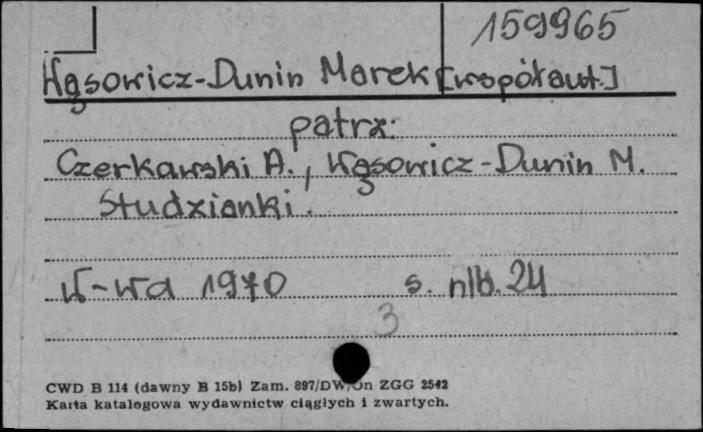 159965
Wąsowicz-Dunin Marek [współaut.]
patrz:
Czerkawski A., Wąsowicz-Dunin M.
Studzianki.
W-wa 1970 s. nlb. 24
3
CWD B 114 (dawny B 15b) Zam. 897/DW/On ZGG 2542
Karta katalogowa wydawnictw ciągłych i zwartych.